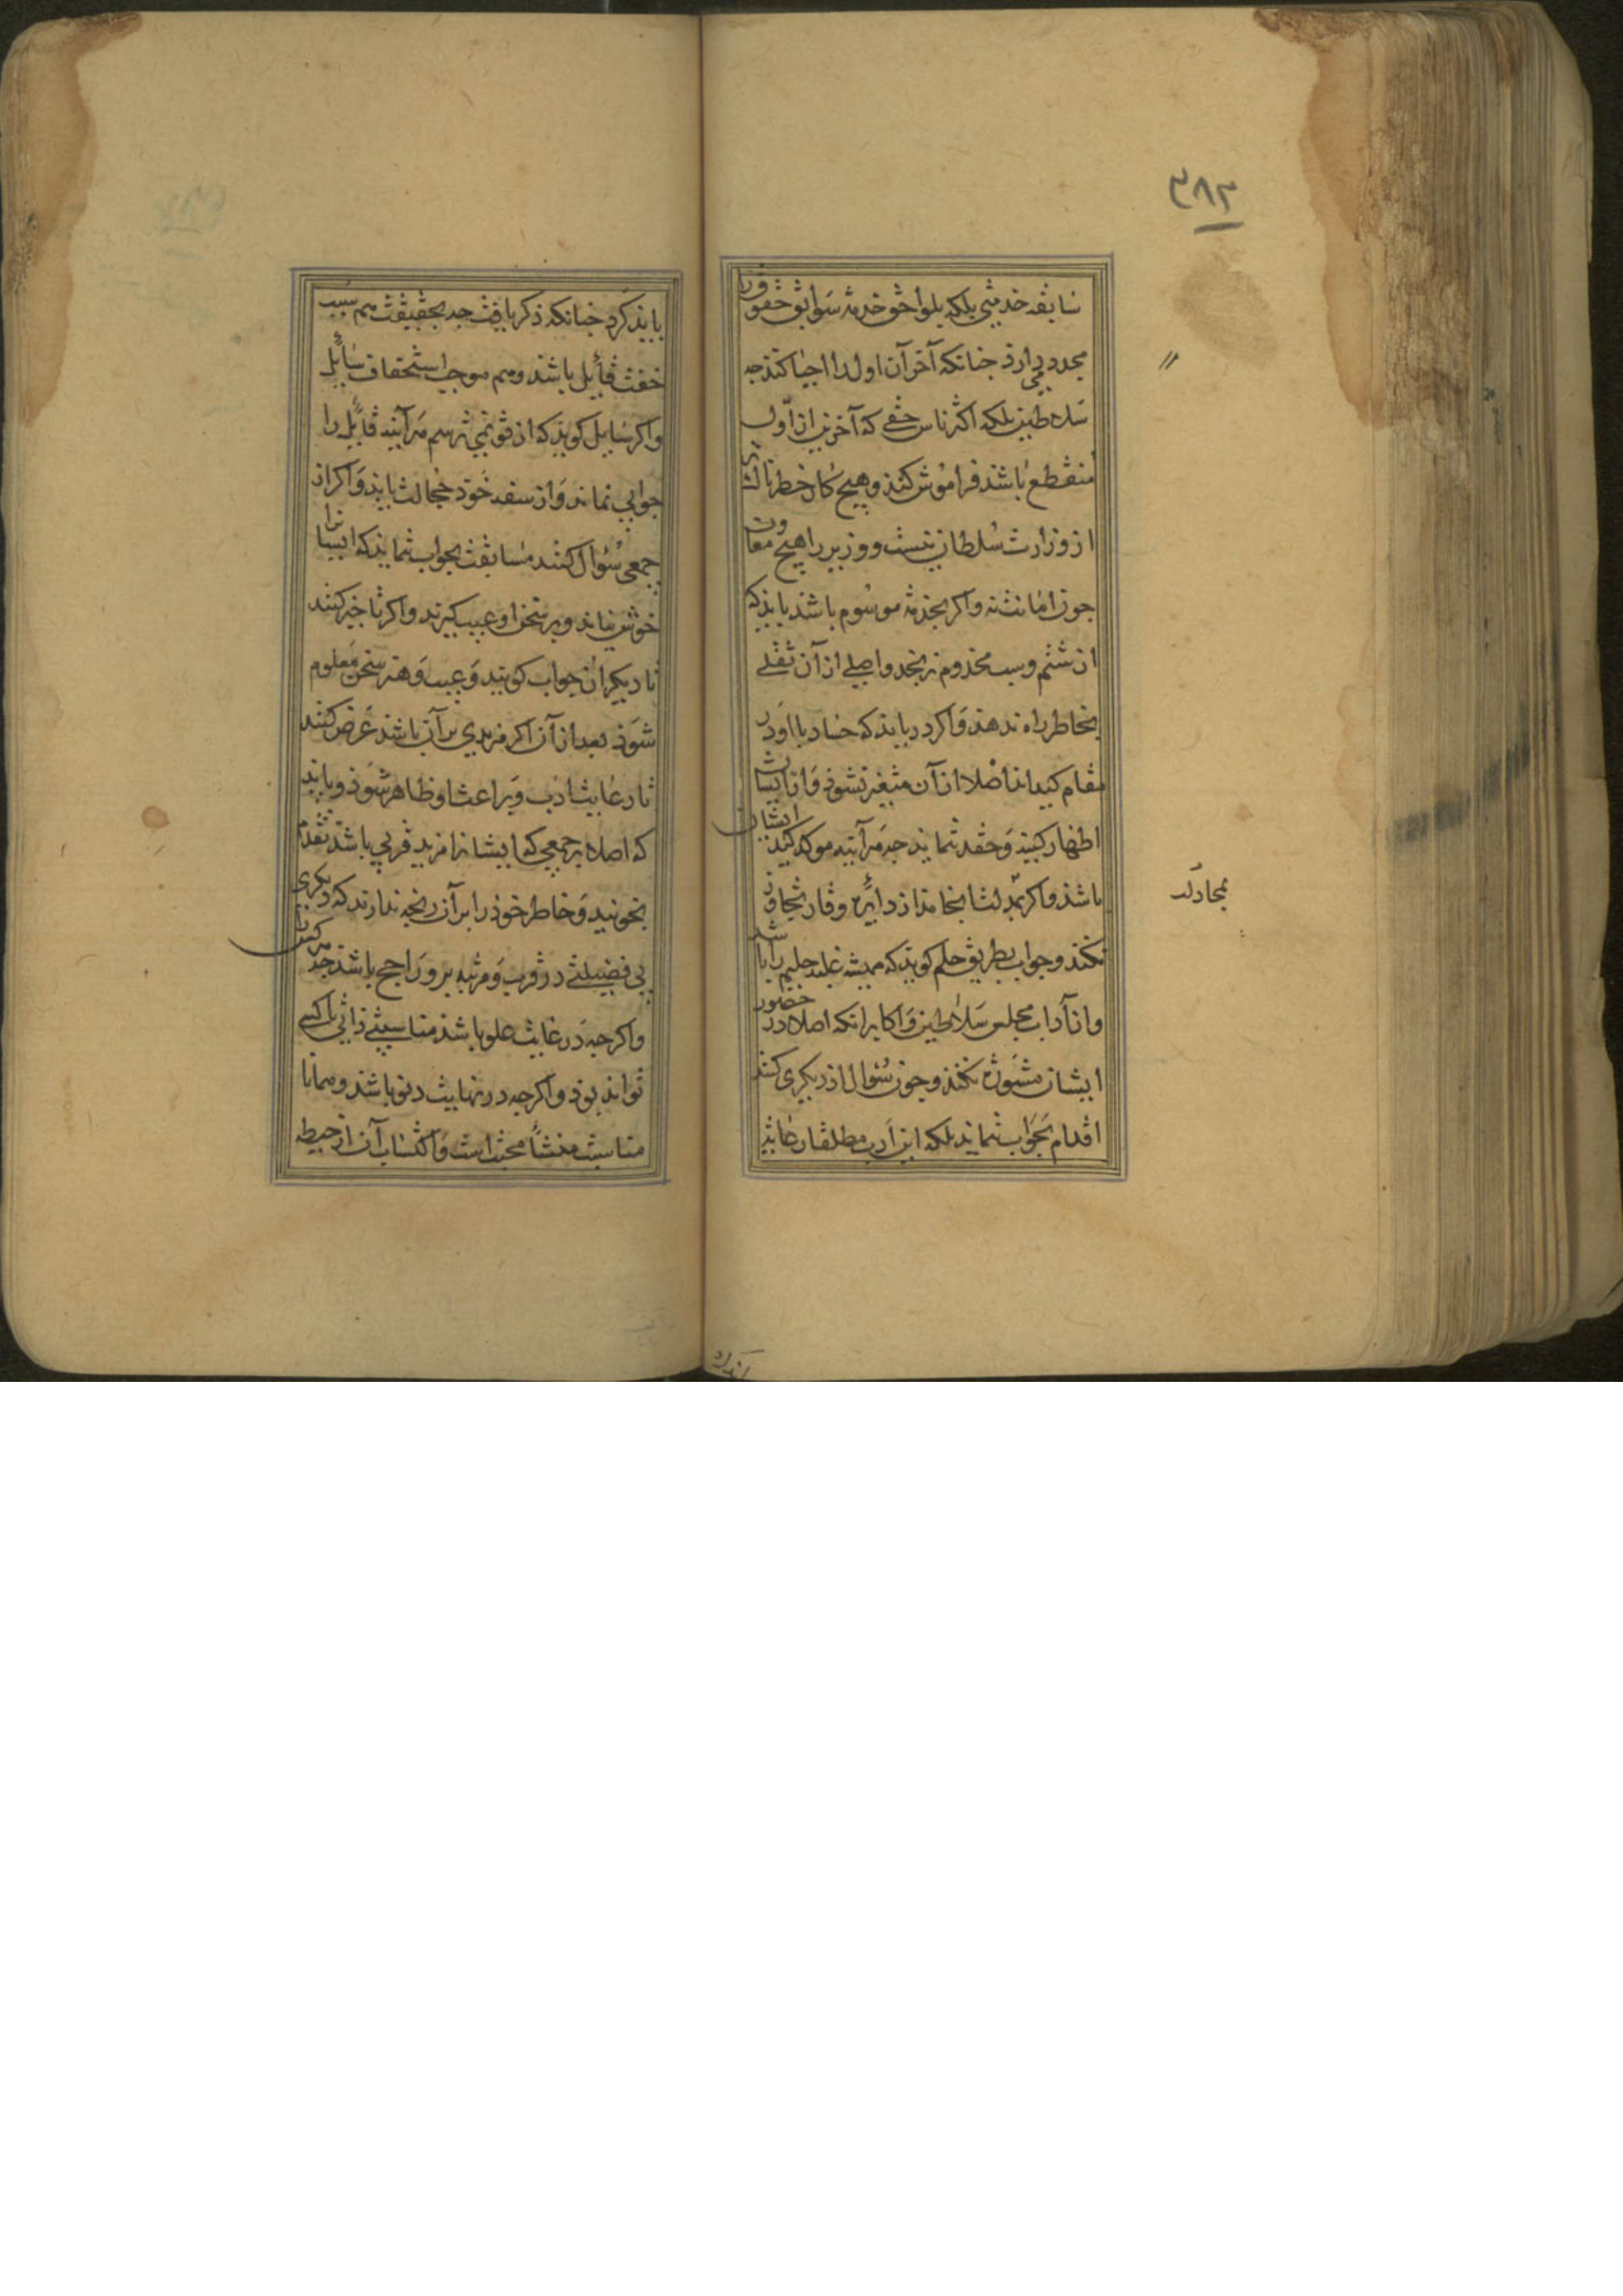 ۳۸۲
سابقه خدمتی بلکه بلواحق خدمة سوابق حقوق را
مجدد می دارد جنانکه آخر آن اول را احیا کند جه
سلاطین بلکه اکثر ناس حقی که آخر نیز از اول
منقطع باشد فراموش کنند و هیچ کار خطرناک تر
از وزارت سلطان نیست و وزیر را هیچ معاونت
جون امانت نه و اکر بخدمة موسوم باشد باید که
از شتم و سب مخدوم نرنجد و اصلی از آن ثقلی
بخاطر راه ندهد و اکر دریابد که حساد با او در
مقام کیداند اصلا از آن متغیر نشوذ و از ایشان
اظهار کینه و حقد ننماید جه هرآینه موکد کید ایشان
باشد و اکر بمجادلت انجامد از دایره وقار تجاوز
نکند و جواب بطریق حلم کوید که همیشه غلبه حلیم را باشد
و از آداب مجلس سلاطین و اکابر انکه اصلا در حضور
ایشان مشورة نکند و جون سؤال از دیکری کنند
اقدام بجواب ننماید بلکه این ادب مطلقا رعایة
بمجادلت
باید کرد جنانکه ذکر یافت جه بحقیقت هم سبب
خفت قایل باشد و هم موجب استحقاف سایل
و اکر سایل کوید که از تو نمی پرسم هرآینه قایل را
جوابی نماند و از سفه خود خجالت یابد و اکر از
جمعی سؤال کنند مسابقت بجواب ننماید که ایشانرا
خوش نیاید و بر سخن او عیب کیرند و اکر تاخیر کنند
تا دیکران جواب کویند و عیب و هنر سخن معلوم
شود بعد از آن اکر مزیدی بر آن باشد عرض کنند
تا رعایت ادب و براعت او ظاهر شوذ و باید
که اصلا بر جمعی که ایشانرا مزید قربی باشد تقدم
نجونید و خاطر خوذ را بر آن رنجه ندارند که دیکری
بی فضیلتی در قرب و مرتبه بر و راجح باشد جه هر کس را
و اکرجه در غایت علو باشد مناسبتی ذاتی با کسی
تواند بوذ و اکرجه در نهایت دنو باشد و همانا
مناسبت منشأ محبت است و اکتساب آن از حیطه